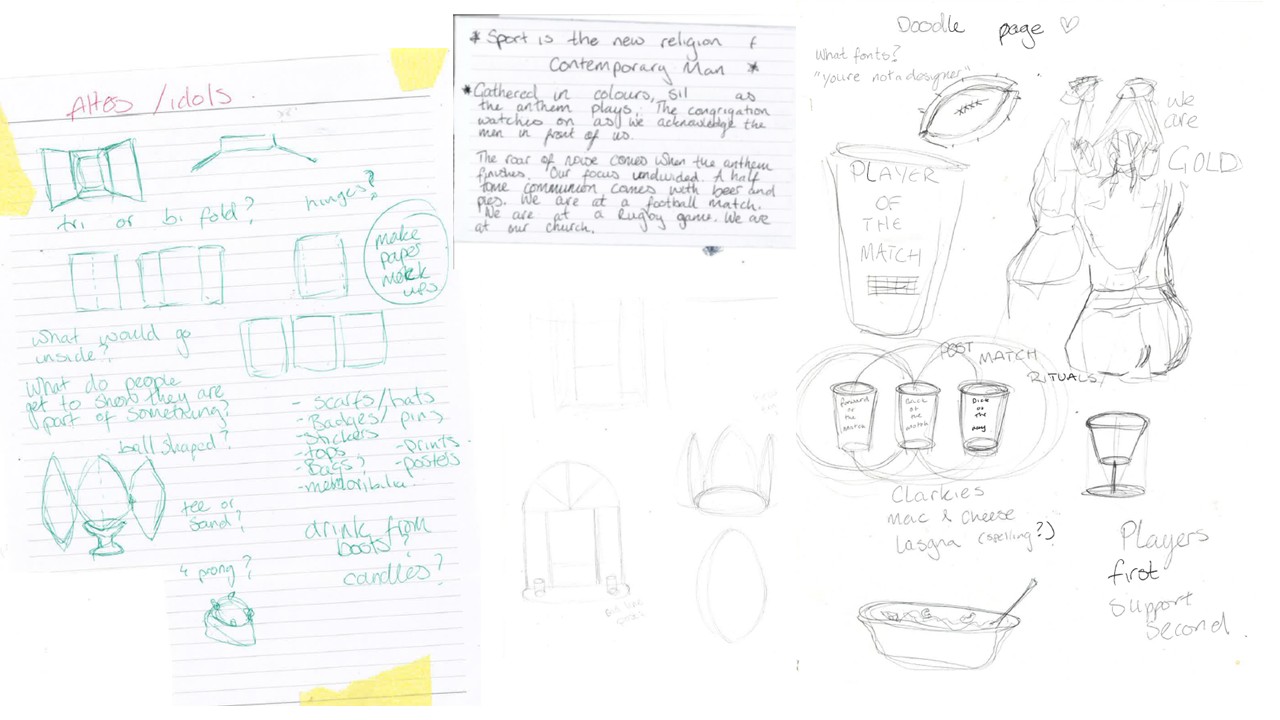 Altes /idols.
tri or bi fold?
hinges?
make
paper
mock
ups
What would go
inside?
What do people
get to show they are
part of something?
ball shaped?
- Scarfs/hats
- Badges/ pins
- Stickers
- tops
- Bags?
- memoribilia
- Prints
- posters
tee or
sand?
drink from
boots?
candles?
4 prong?
* Sport is the new religion
Contemporary Man *
* Gathered in colours, sil as
the anthem plays. The congrigation
watches on as we acknowledge the
men in front of us.
The roar of noise comes when the anthem
finishes. Our focus undivided. A half
time communion comes with beer and
pies. We are at a football match.
We are at a Rugby game. We are
at our church.
Doodle page ♡
What fonts?
"you're not a designer"
we
are
GOLD
PLAYER
OF
THE
MATCH
POST MATCH
RITUALS/
forward
of the
match
Back
of the
match
Dick
of the
day
Clarkies
Mac & Cheese
Lasgna (spelling?)
Players
first
Support
Second.